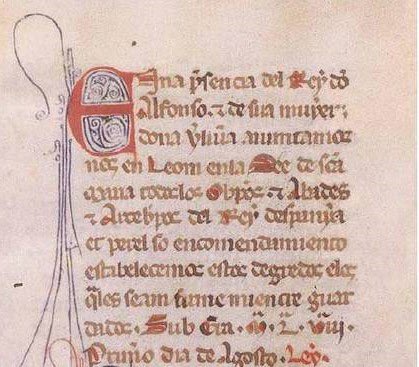 Ena p̃sencia del Rey dõ
Alfonso ⁊ de sua muyer
dona yluira aiuntamos
nos en Leom enla See de sc̃a
maria todoslos Obpos ⁊ Abades
⁊ Arcebpos del Rey despanna
et porel so encomendamiento
establecemos estos degredos elos
q̃les seam firme mientre guar
dados · Sub Era · M̊ · L · viii ·
Primo dia de Agosto · Ley ·